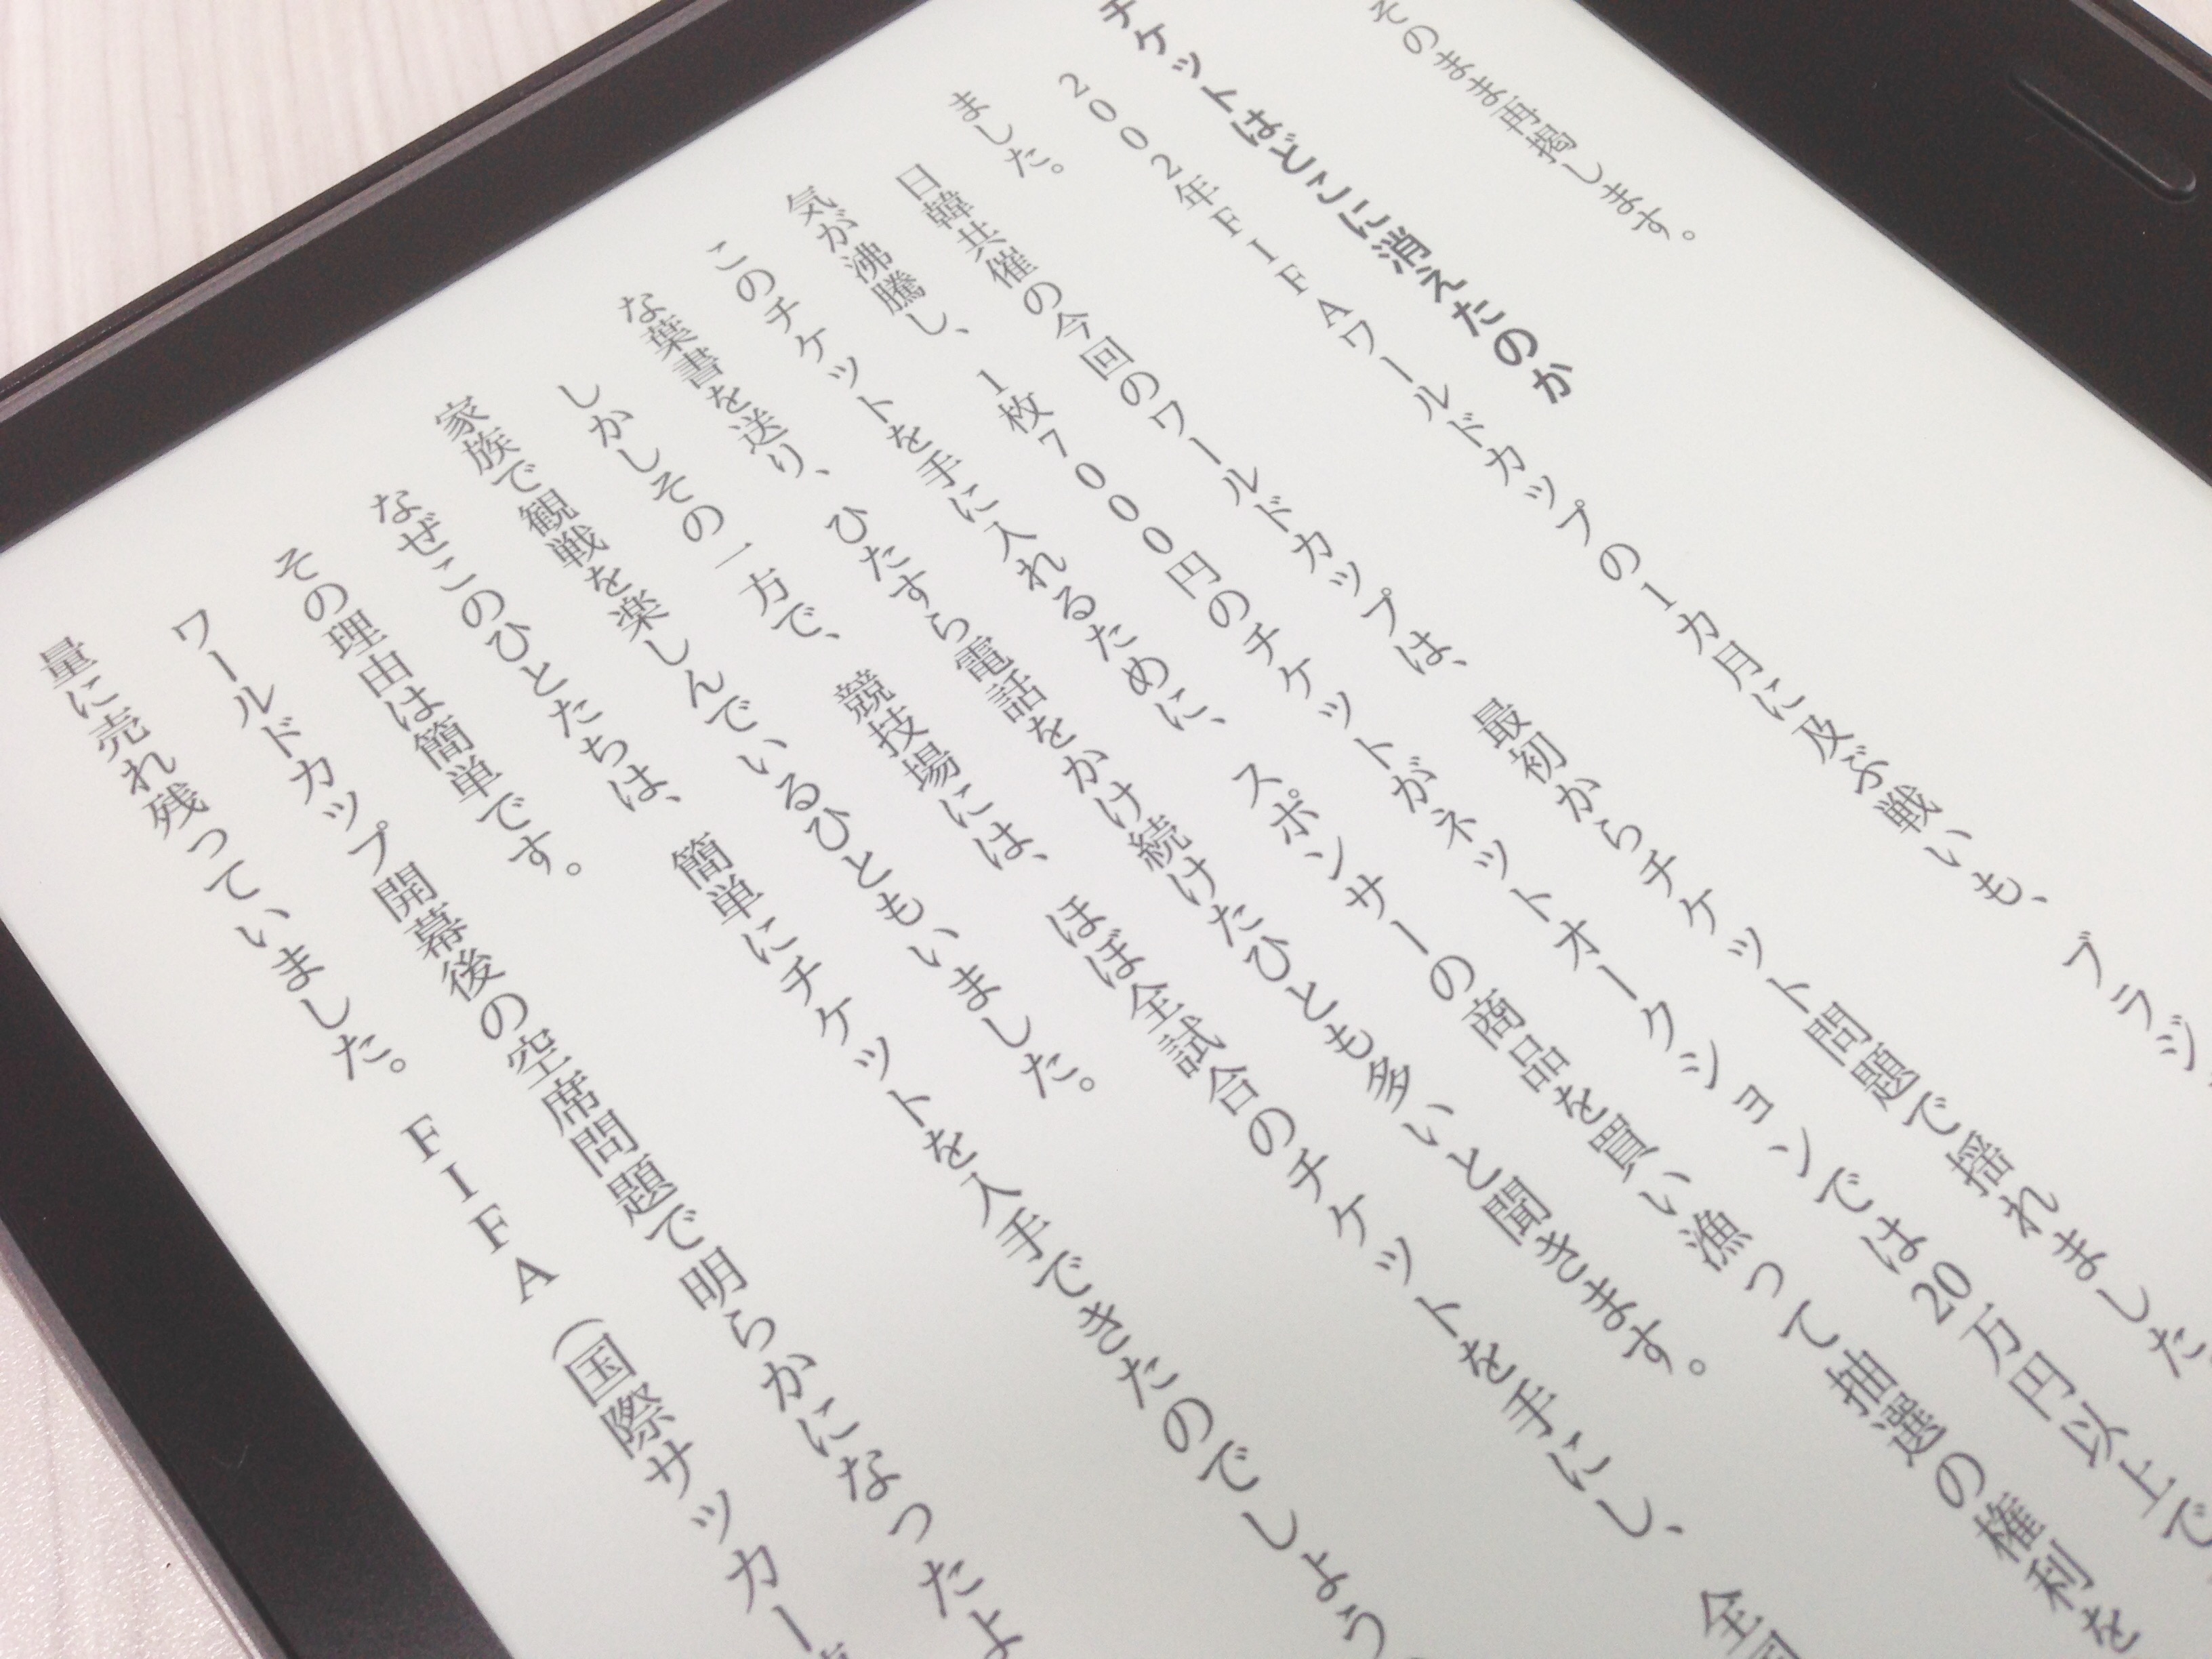 そのまま再掲します。
チケットはどこに消えたのか
2002年FIFAワールドカップの1カ月に及ぶ戦いも、ブラジ
ました。
日韓共催の今回のワールドカップは、最初からチケット問題で揺れました
気が沸騰し、1枚7000円のチケットがネットオークションでは20万円以上で
このチケットを手に入れるために、スポンサーの商品を買い漁って抽選の権利を
な葉書を送り、ひたすら電話をかけ続けたひとも多いと聞きます。
しかしその一方で、競技場には、ほぼ全試合のチケットを手にし、全
家族で観戦を楽しんでいるひともいました。
なぜこのひとたちは、簡単にチケットを入手できたのでしょう
その理由は簡単です。
ワールドカップ開幕後の空席問題で明らかになったよ
量に売れ残っていました。FIFA（国際サッカー